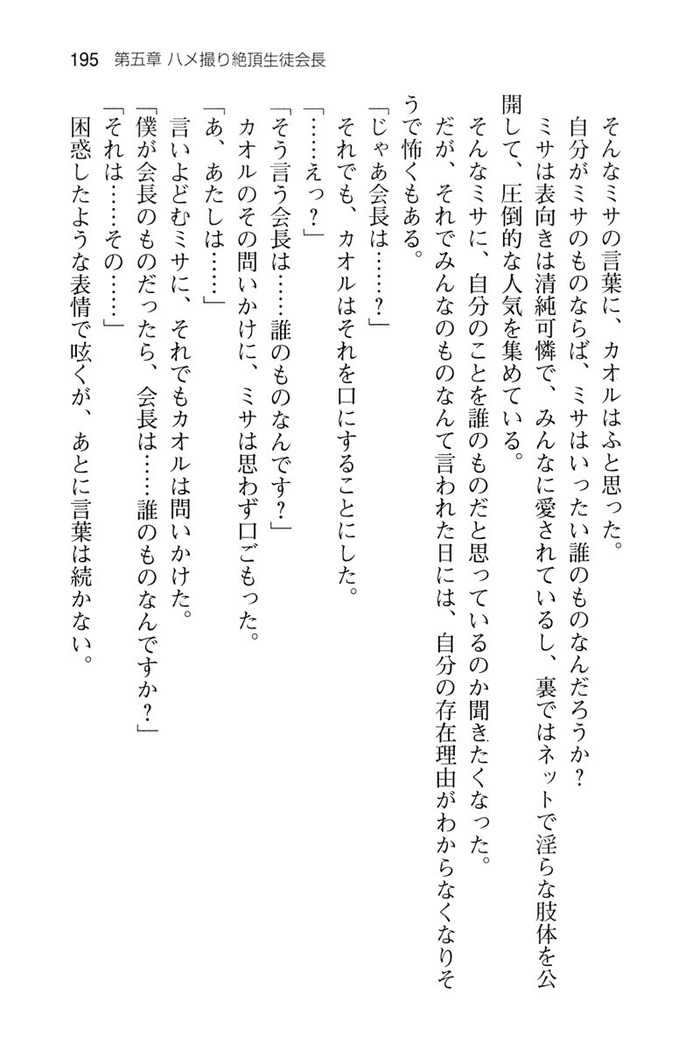 195 第五章 ハメ撮り絶頂生徒会長
そんなミサの言葉に、カオルはふと思った。
自分がミサのものならば、ミサはいったい誰のものなんだろうか？
ミサは表向きは清純可憐で、みんなに愛されているし、裏ではネットで淫らな肢体を公
開して、圧倒的な人気を集めている。
そんなミサに、自分のことを誰のものだと思っているのか聞きたくなった。
だが、それでみんなのものなんて言われた日には、自分の存在理由がわからなくなりそ
うで怖くもある。
「じゃあ会長は……？」
それでも、カオルはそれを口にすることにした。
「……えっ？」
「そう言う会長は……誰のものなんです？」
カオルのその問いかけに、ミサは思わず口ごもった。
「あ、あたしは……」
言いよどむミサに、それでもカオルは問いかけた。
「僕が会長のものだったら、会長は……誰のものなんですか？」
「それは……その……」
困惑したような表情で呟くが、あとに言葉は続かない。